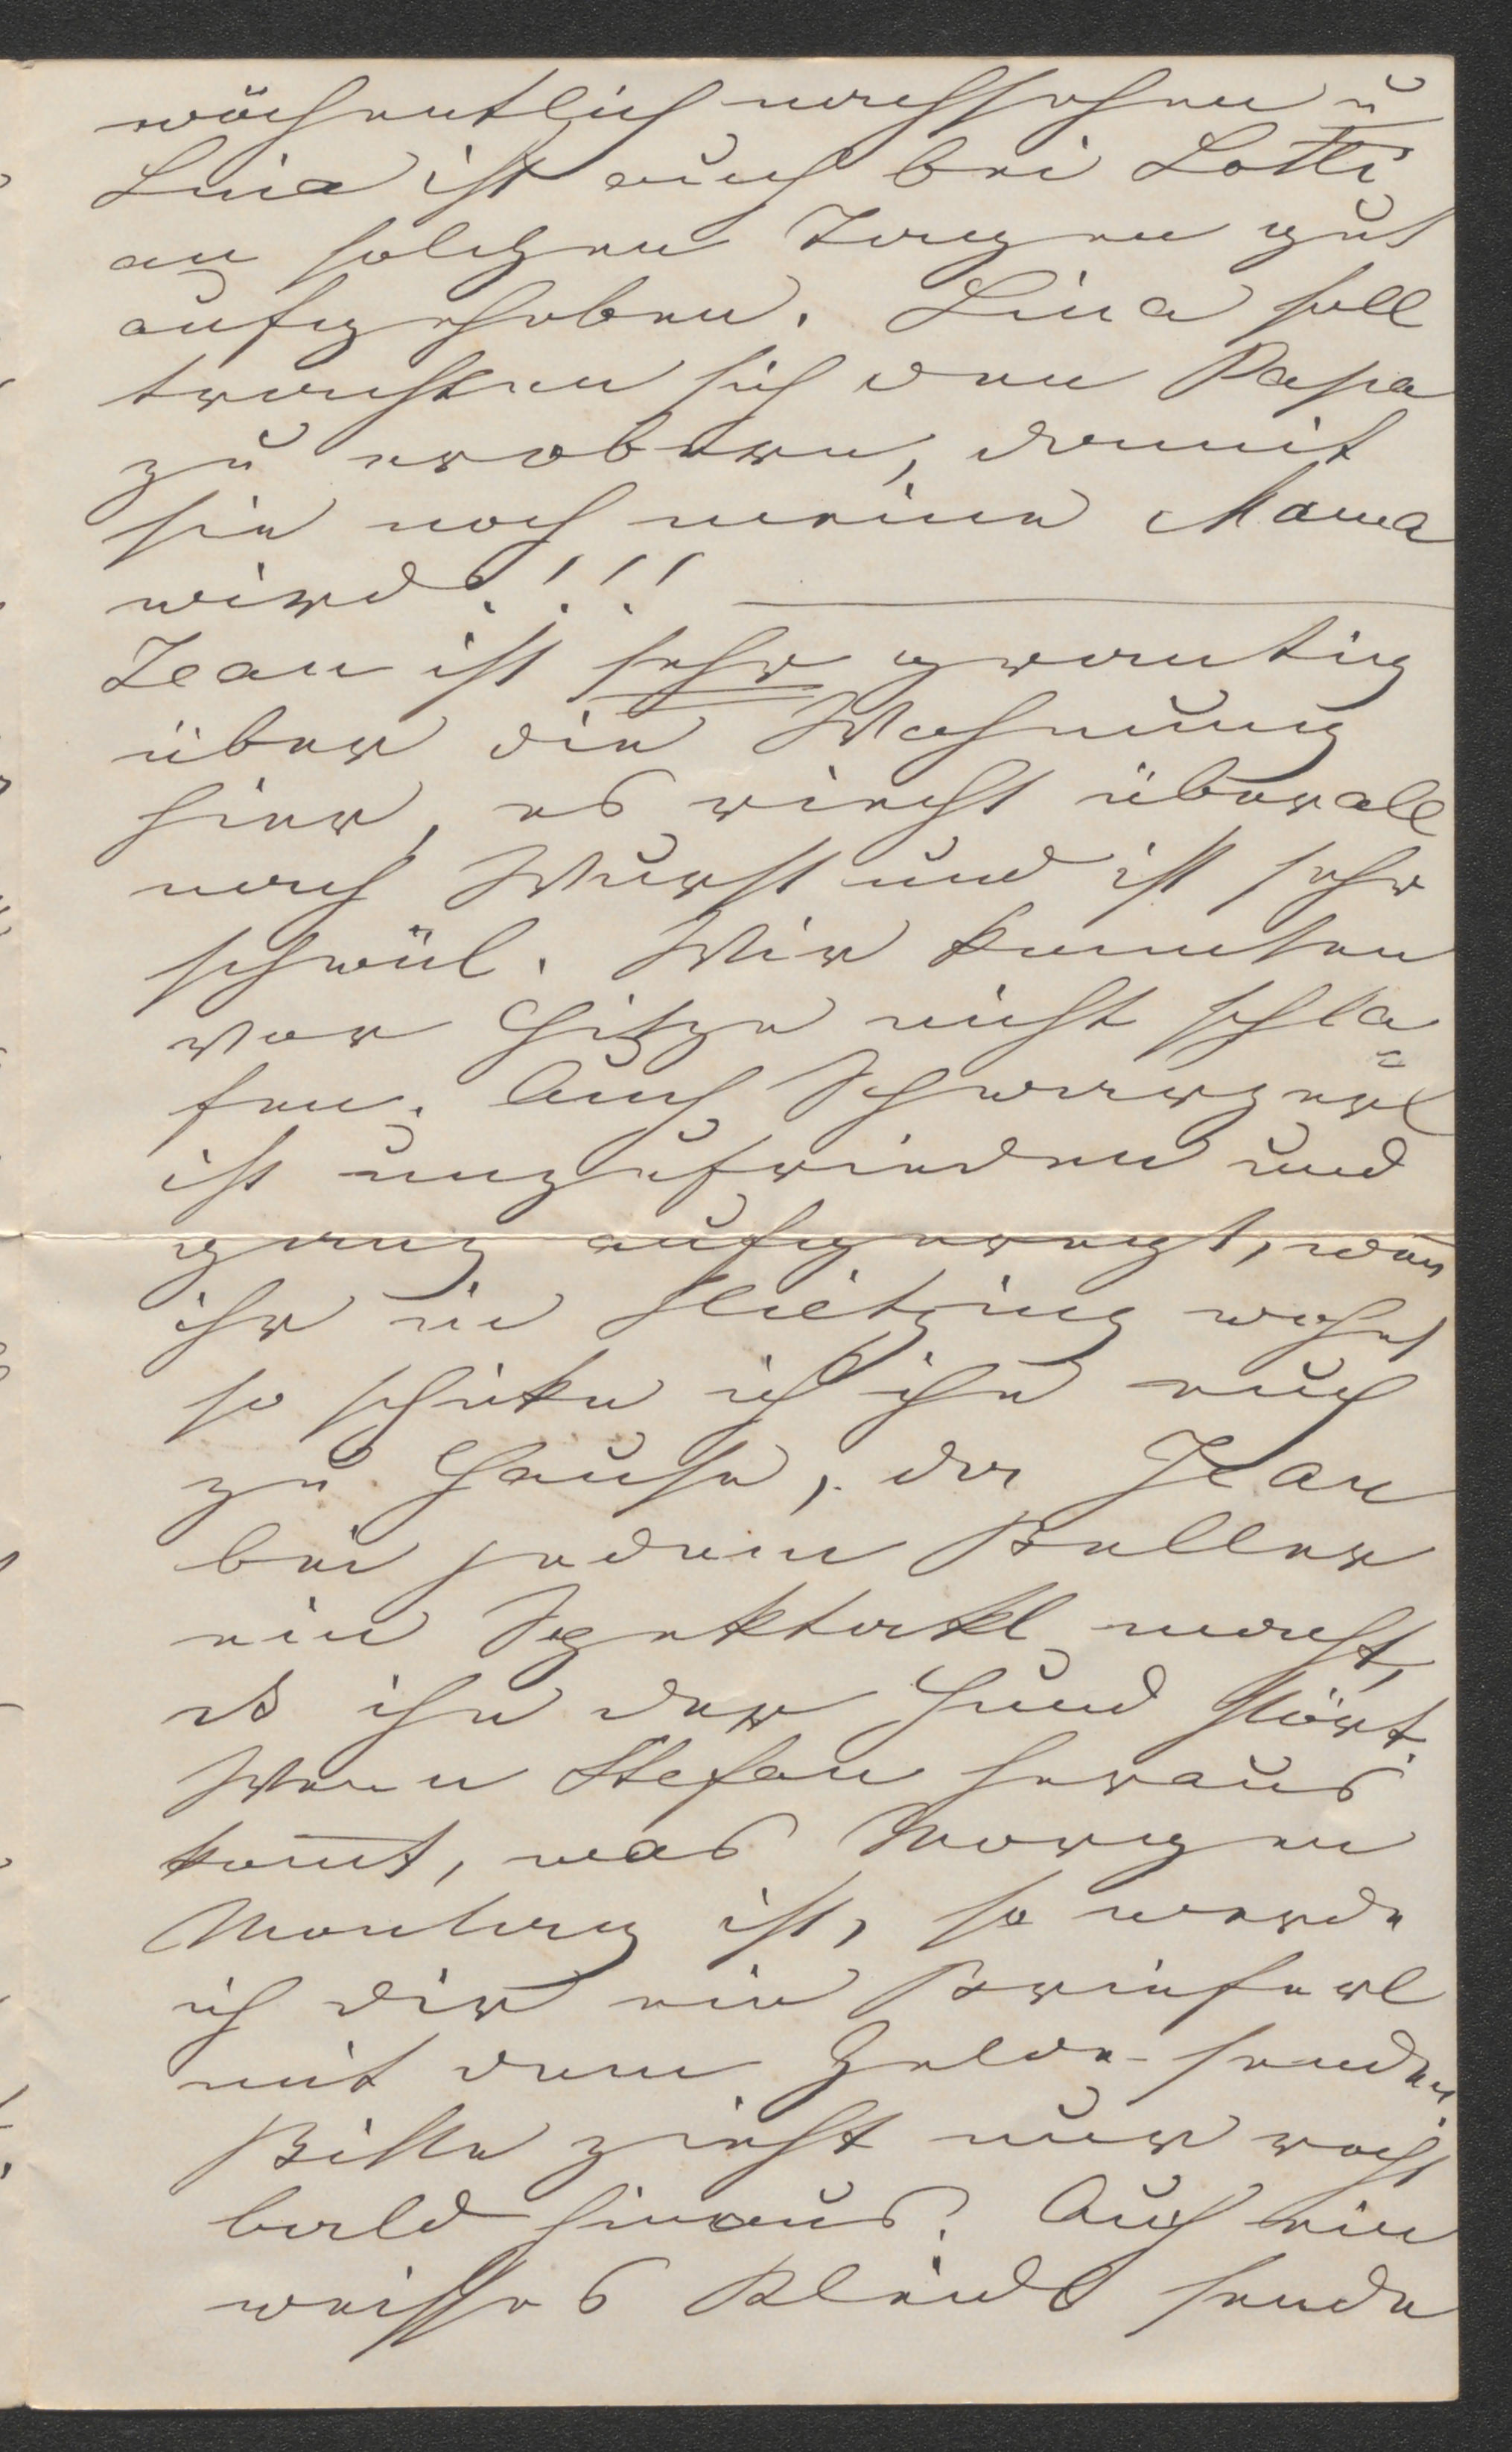 wöchentlich nachsehen u
Lina ist auch bei Lotti
an solchen Tagen gut
aufgehoben. Lina soll
trachten sich den Papa
zu erobern, damit
sie noch meine Mama
wird.!!!
Jean ist sehr grantig
über die Wohnung
hier, es riecht überall
nach Wurst und ist sehr
schwül. Wir konnten
vor Hitze nicht schla=
fen. Auch Schwarzerl
ist unzufrieden und
ganz aufgeregt, wen̄
ihr in Hietzing wohnt
so schicke ich ihn euch
zu Hause, da Jean
bei jedem Beller
ein Spektakl macht,
es ihn der Hund stört.
Wenn Stefan heraus
kom̄t, was Morgen
Montag ist, so werde
ich dir ein Brieferl
mit dem Gelde senden.
Bitte zieht nur recht
bald hinaus. Auch ein
weisses Kleid sende